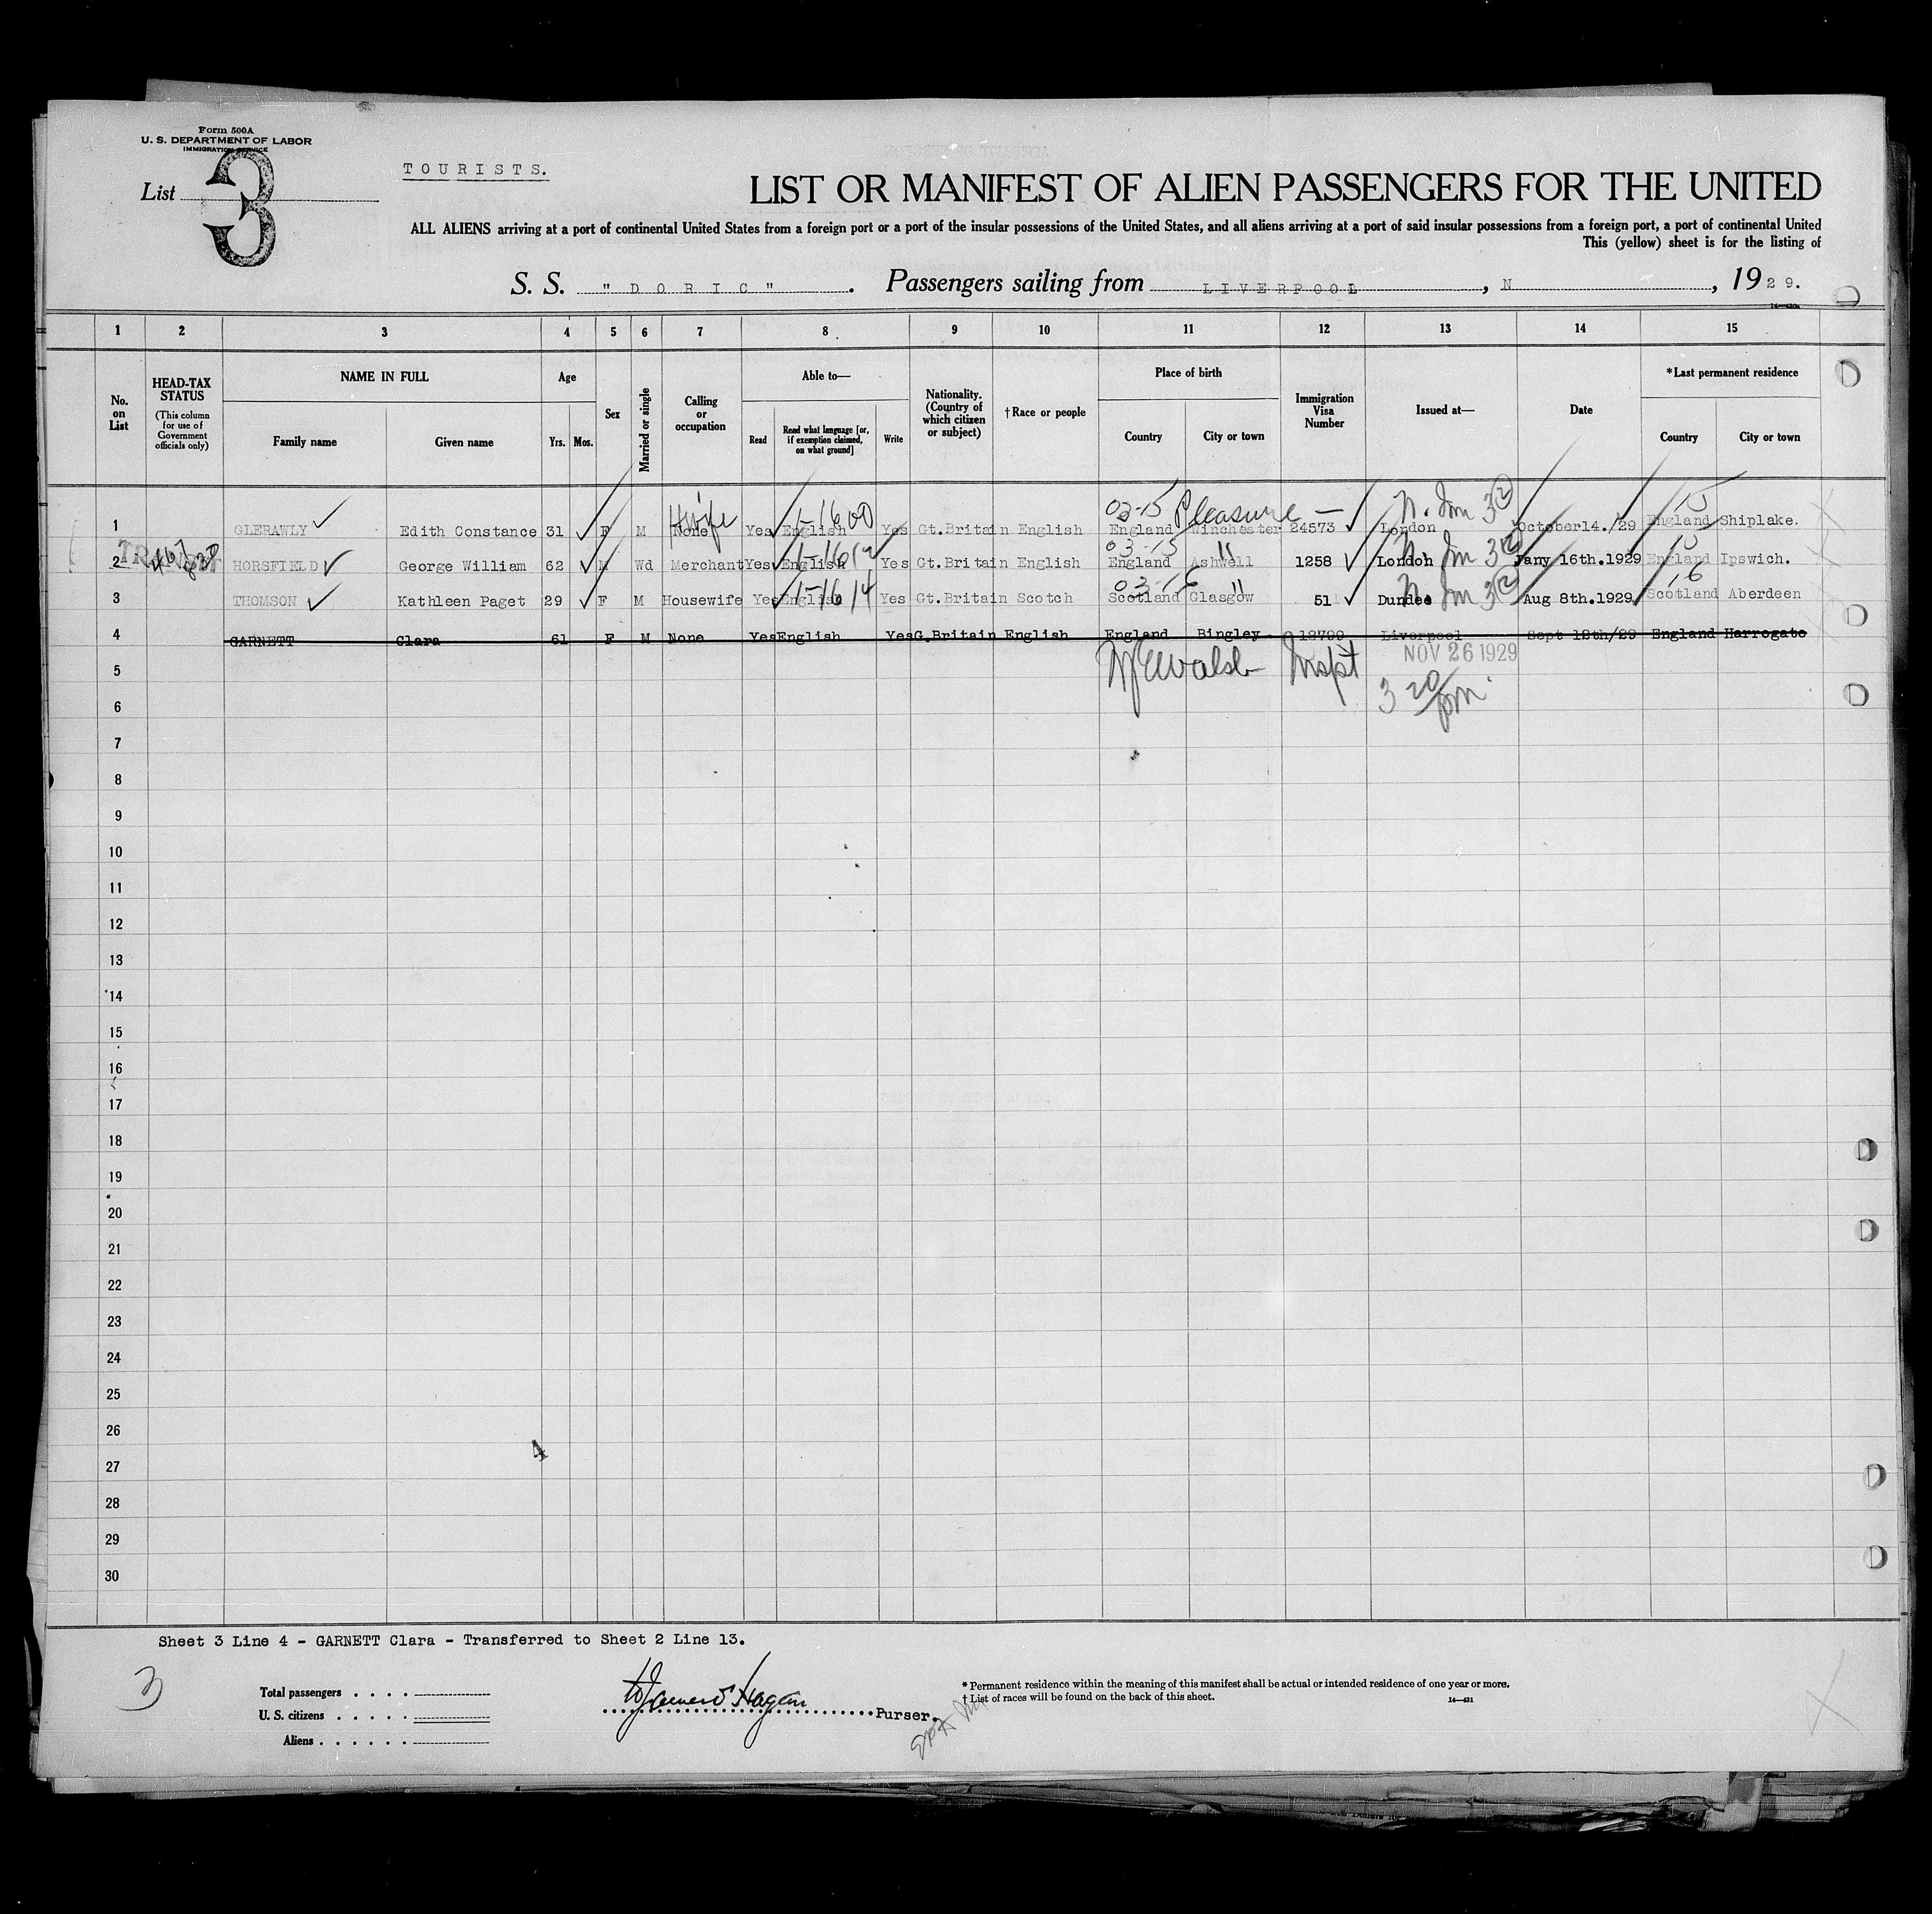 Form 500A
U. S. DEPARTMENT OF LABOR
IMMIGRATION SERVICE
List 3
TOURISTS.
LIST OR MANIFEST OF ALIEN PASSENGERS FOR THE UNITED
ALL ALIENS arriving at a port of continental United States from a foreign port or a port of the insular possessions of the United States, and all aliens arriving at a port of said insular possessions from a foreign port, a port of continental United
This (yellow) sheet is for the listing of
S. S. "DORIC". Passengers sailing from LIVERPOOL, N, 1929.
1 2 3 4 5 6 7 8 9 10 11 12 13 14 15
No. on List
HEAD-TAX STATUS
(This column for use of Government officials only)
NAME IN FULL
Family name Given name
Age
Yrs. Mos.
Sex
Married or single
Calling or occupation
Able to—
Read Read what language [or, if exemption claimed, on what ground] Write
Nationality. (Country of which citizen or subject)
†Race or people
Place of birth
Country City or town
Immigration Visa Number
Issued at—
Date
*Last permanent residence
Country City or town
Hwife 1-1600 03-15 Pleasure — 15
1 GLERAWLY Edith Constance 31 F M None Yes English Yes Gt.Britain English England Winchester 24573 London October14./29 England Shiplake.
1-16 03-15 " 15
2 HORSFIELD George William 62 M Wd Merchant Yes English Yes Gt.Britain English England Ashwell 1258 London Jany 16th.1929 England Ipswich.
1-1614 03-16 " 16
3 THOMSON Kathleen Paget 29 F M Housewife Yes English Yes Gt.Britain Scotch Scotland Glasgow 51 Dundee Aug 8th.1929 Scotland Aberdeen
4 GARNETT Clara 61 F M None Yes English Yes G.Britain English England Bingley 12799 Liverpool Sept 12th/29 England Harrogate
NOV 26 1929
5 Walsh Inspt
3 20/pm
6
7
8
9
10
11
12
13
14
15
16
17
18
19
20
21
22
23
24
25
26
4
27
28
29
30
Sheet 3 Line 4 - GARNETT Clara - Transferred to Sheet 2 Line 13.
3
Total passengers . . . .
U. S. citizens . . . . .
Aliens . . . . . .
Hagan Purser.
* Permanent residence within the meaning of this manifest shall be actual or intended residence of one year or more.
† List of races will be found on the back of this sheet.
14—431